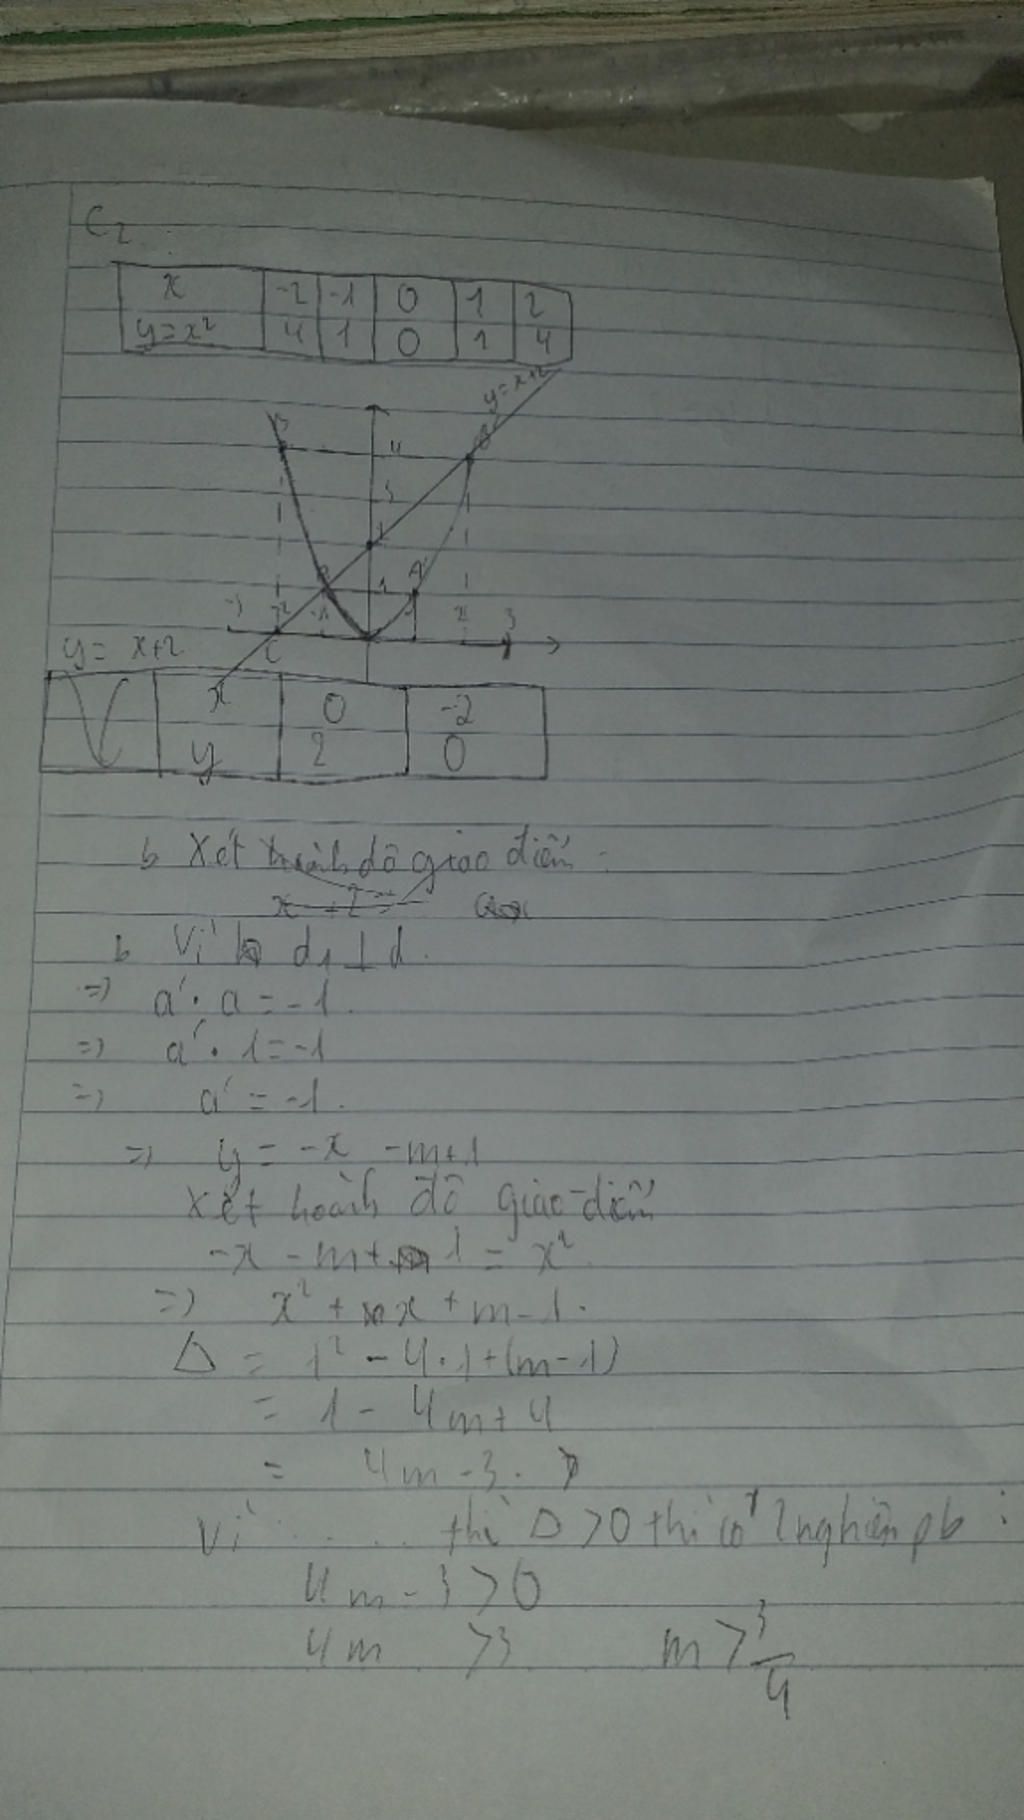 C2
x -2 -1 0 1 2
y=x² 4 1 0 1 4
y=x+2
4
3
1 A'
-3 -2 -1 1 2 3
C
y = x+2
x 0 -2
y 2 0
b Xét hoành độ giao điểm
x + 2 =
b Vì d1 ⊥ d.
=> a'. a = -1.
=> a'. 1 = -1
=> a' = -1.
=> y = -x -m+1
Xét hoành độ giao điểm
-x - m + 1 = x².
=> x² + x + m - 1.
Δ = 1² - 4.1+(m-1)
= 1 - 4m+4
= 4m - 3.
Vì .... thì Δ >0 thì có 2 nghiệm pb :
4m - 3 > 0
4m > 3 m > 3/4